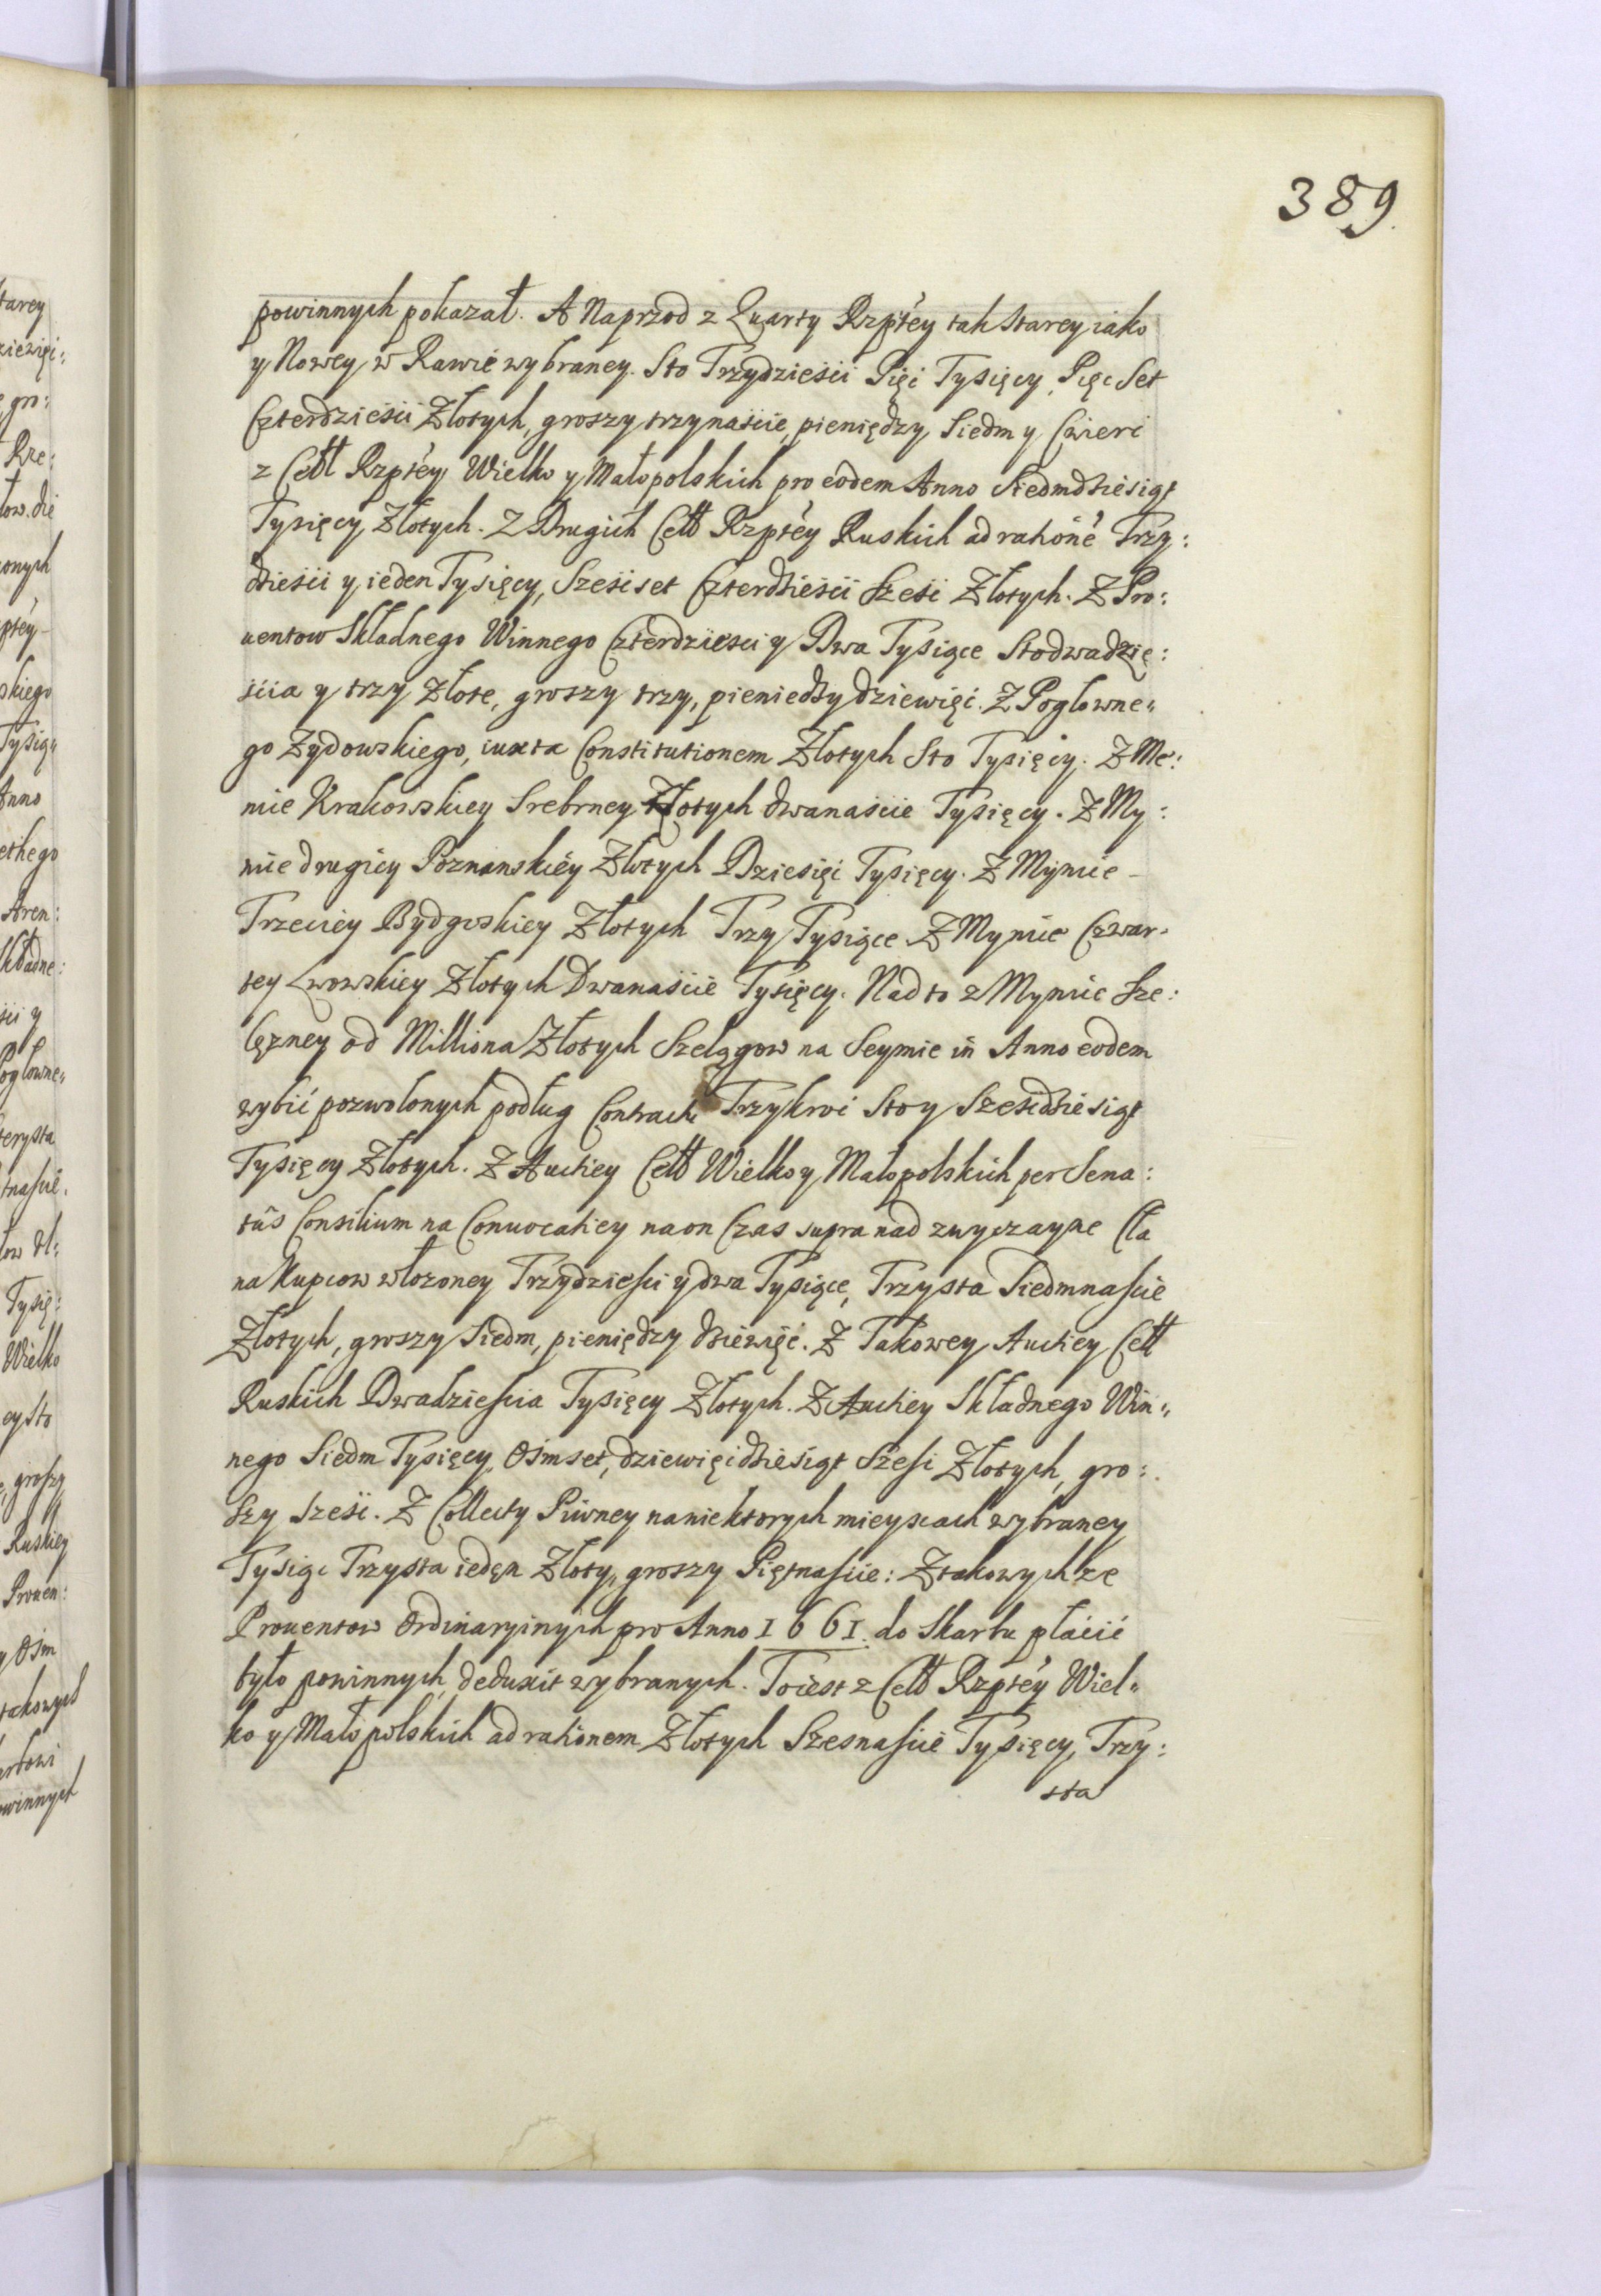 389.
powinnych pokazał. A Naprzod z Quarty Rzptéy tak Starey iako
y Nowey w Rawie wybraney. Sto Trzydzieści Pięć Tysięcy, Pięc Set
Czterdzieści Złotych, groszy trzynaście, pieniędzy Siedm y Ćwierć
z Cełł Rzptéy Wielko y Małopolskich pro eodem Anno Siedmdziesiąt
Tysięcy Złotych. Z Drugich Cełł Rzptéy Ruskich ad rationé Trzy:
dzieści y ieden Tysięcy, Sześćset Czterdzieści Sześć Złotych. Z Pro:
uentow Składnego Winnego Czterdziesci y Dwa Tysiące Stodwadzie:
ścia y trzy złote, groszy trzy, pieniedzy dziewięć. Z Pogłowne„
go Zydowskiego, iuxta Constitutionem Złotych Sto Tysięcy. Z Me:
nnice Krakowskiey Srebrney Złotych dwanaście Tysięcy. Z My:
nnice drugiey Poznanskiéy Złotych Dziesięć Tysięcy. Z Mynnice
Trzeciéy Bydgoskiey Złotych Trzy Tysiące Z Mynnice Czwar-
tey Lwowskiey Złotych Dwanaście Tysięcy. Nad to z Mynnice Sze:
lężney od Milliona Złotych Szelągow na Seymie in Anno eodem
wybić pozwolonych podług Contractu Trzykroć Sto y Sześćdziesiąt
Tysięcy Złotych. Z Auctiey Cełł Wielko y Małopolskich per Sena:
tûs Consilium na Conuocatiey na on Czas supra nad zwyczayne Cła
na Kupcow włożoney Trzydzieści y dwa Tysiące, Trzysta Siedmnaście
Złotych, groszy Siedm, pieniędzy dziewięć. Z Takowey Auctiey Cełł
Ruskich Dwadzieścia Tysięcy Złotych. Z Auctiey Składnego Win„
nego Siedm Tysięcy Ośmset, dziewięćdziesiąt Sześć Złotych, gro:
szy sześć. Z Collecty Piwney na niektorych mieyscach wybraney
Tysiąc Trzysta ieden Złoty, groszy Piętnaście: Z takowych ze
Prouentow Ordinaryinych pro Anno 1661. do Skarbu płacić
było powinnych deduxit wybranych. To iest z Cełł Rzptéy Wiel„
ko y Małopolskich ad rationem Złotych Szesnaście Tysięcy, Trzy:
sta